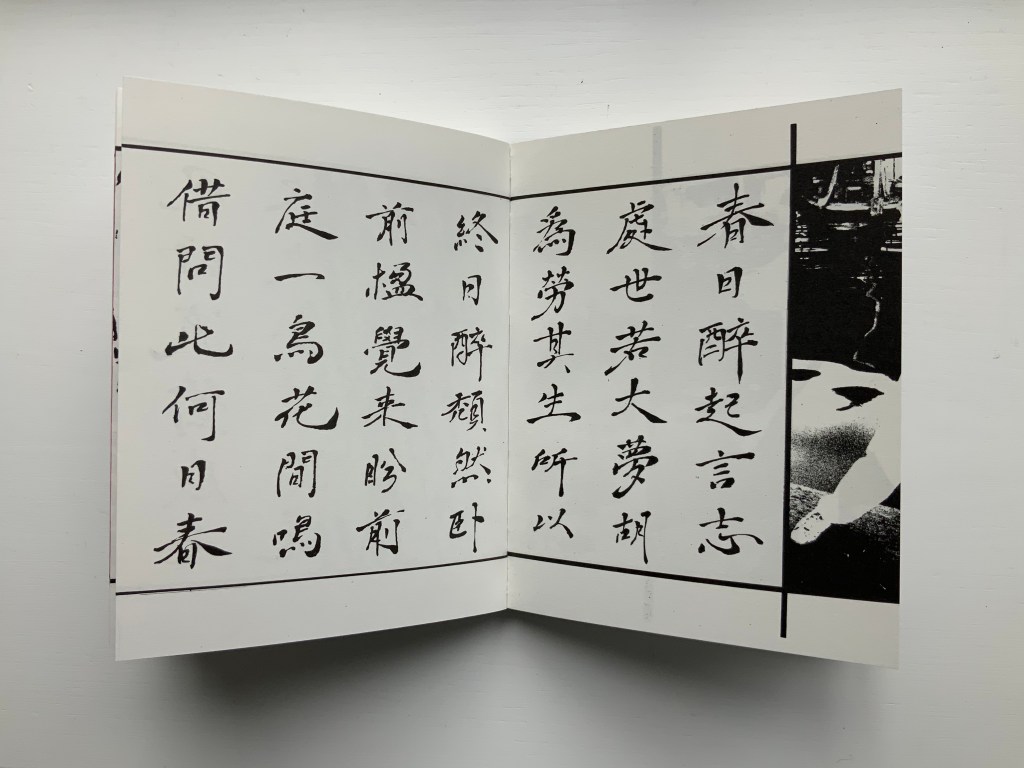 春日醉起言志
處世若大夢胡
為勞其生所以
終日醉頹然卧
前楹覺来盼前
庭一鳥花間鳴
借問此何日春